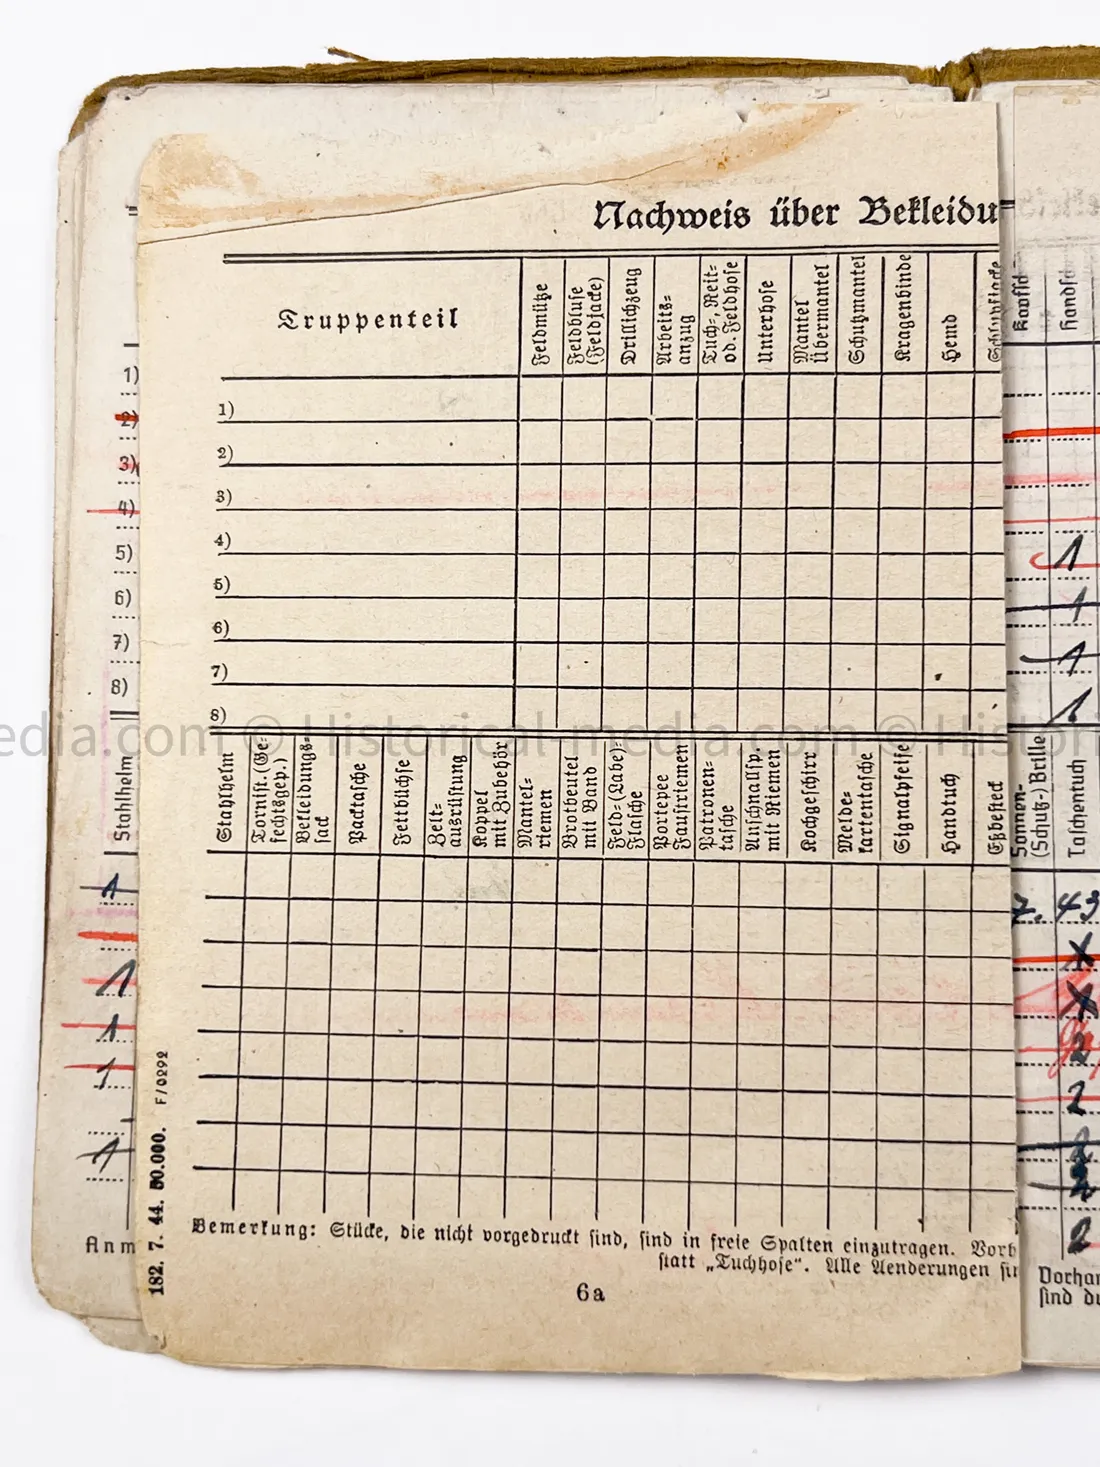 Nachweis über Bekleidu
Truppenteil
Feldmütze
Feldbluse
(Feldjacke)
Drillichzeug
Arbeits-
anzug
Tuch-, Reit-
od. Feldhose
Unterhose
Mantel
Übermantel
Schutzmantel
Kragenbinde
Hemd
1)
2)
3)
4)
5)
6)
7)
8)
Stahlhelm
Tornist. (Ge-
fechtsgep.)
Bekleidungs-
sack
Packtasche
Fettbüchse
Zelt-
ausrüstung
Koppel
mit Zubehör
Mantel-
riemen
Brotbeutel
mit Band
Feld-(Labe)-
Flasche
Portepee
Faustriemen
Patronen-
tasche
Anschnallsp.
mit Riemen
Kochgeschirr
Melde-
kartentasche
Signalpfeife
Handtuch
Eßbesteck
Bemerkung: Stücke, die nicht vorgedruckt sind, sind in freie Spalten einzutragen. Vorh
statt „Tuchhose“. Alle Aenderungen sin
6a
182. 7. 44. 80.000. F/0292
1)
2)
3)
4)
5)
6)
7)
8)
Stahlhelm
1
1
1
1
1
Anm
Handsch
1
1
1
1
Sonnen-
(Schutz-) Brille
Taschentuch
7. 43
x
x
2
2
2
2
Vorhan
sind du
edia.com © Historical-media.com © Histori